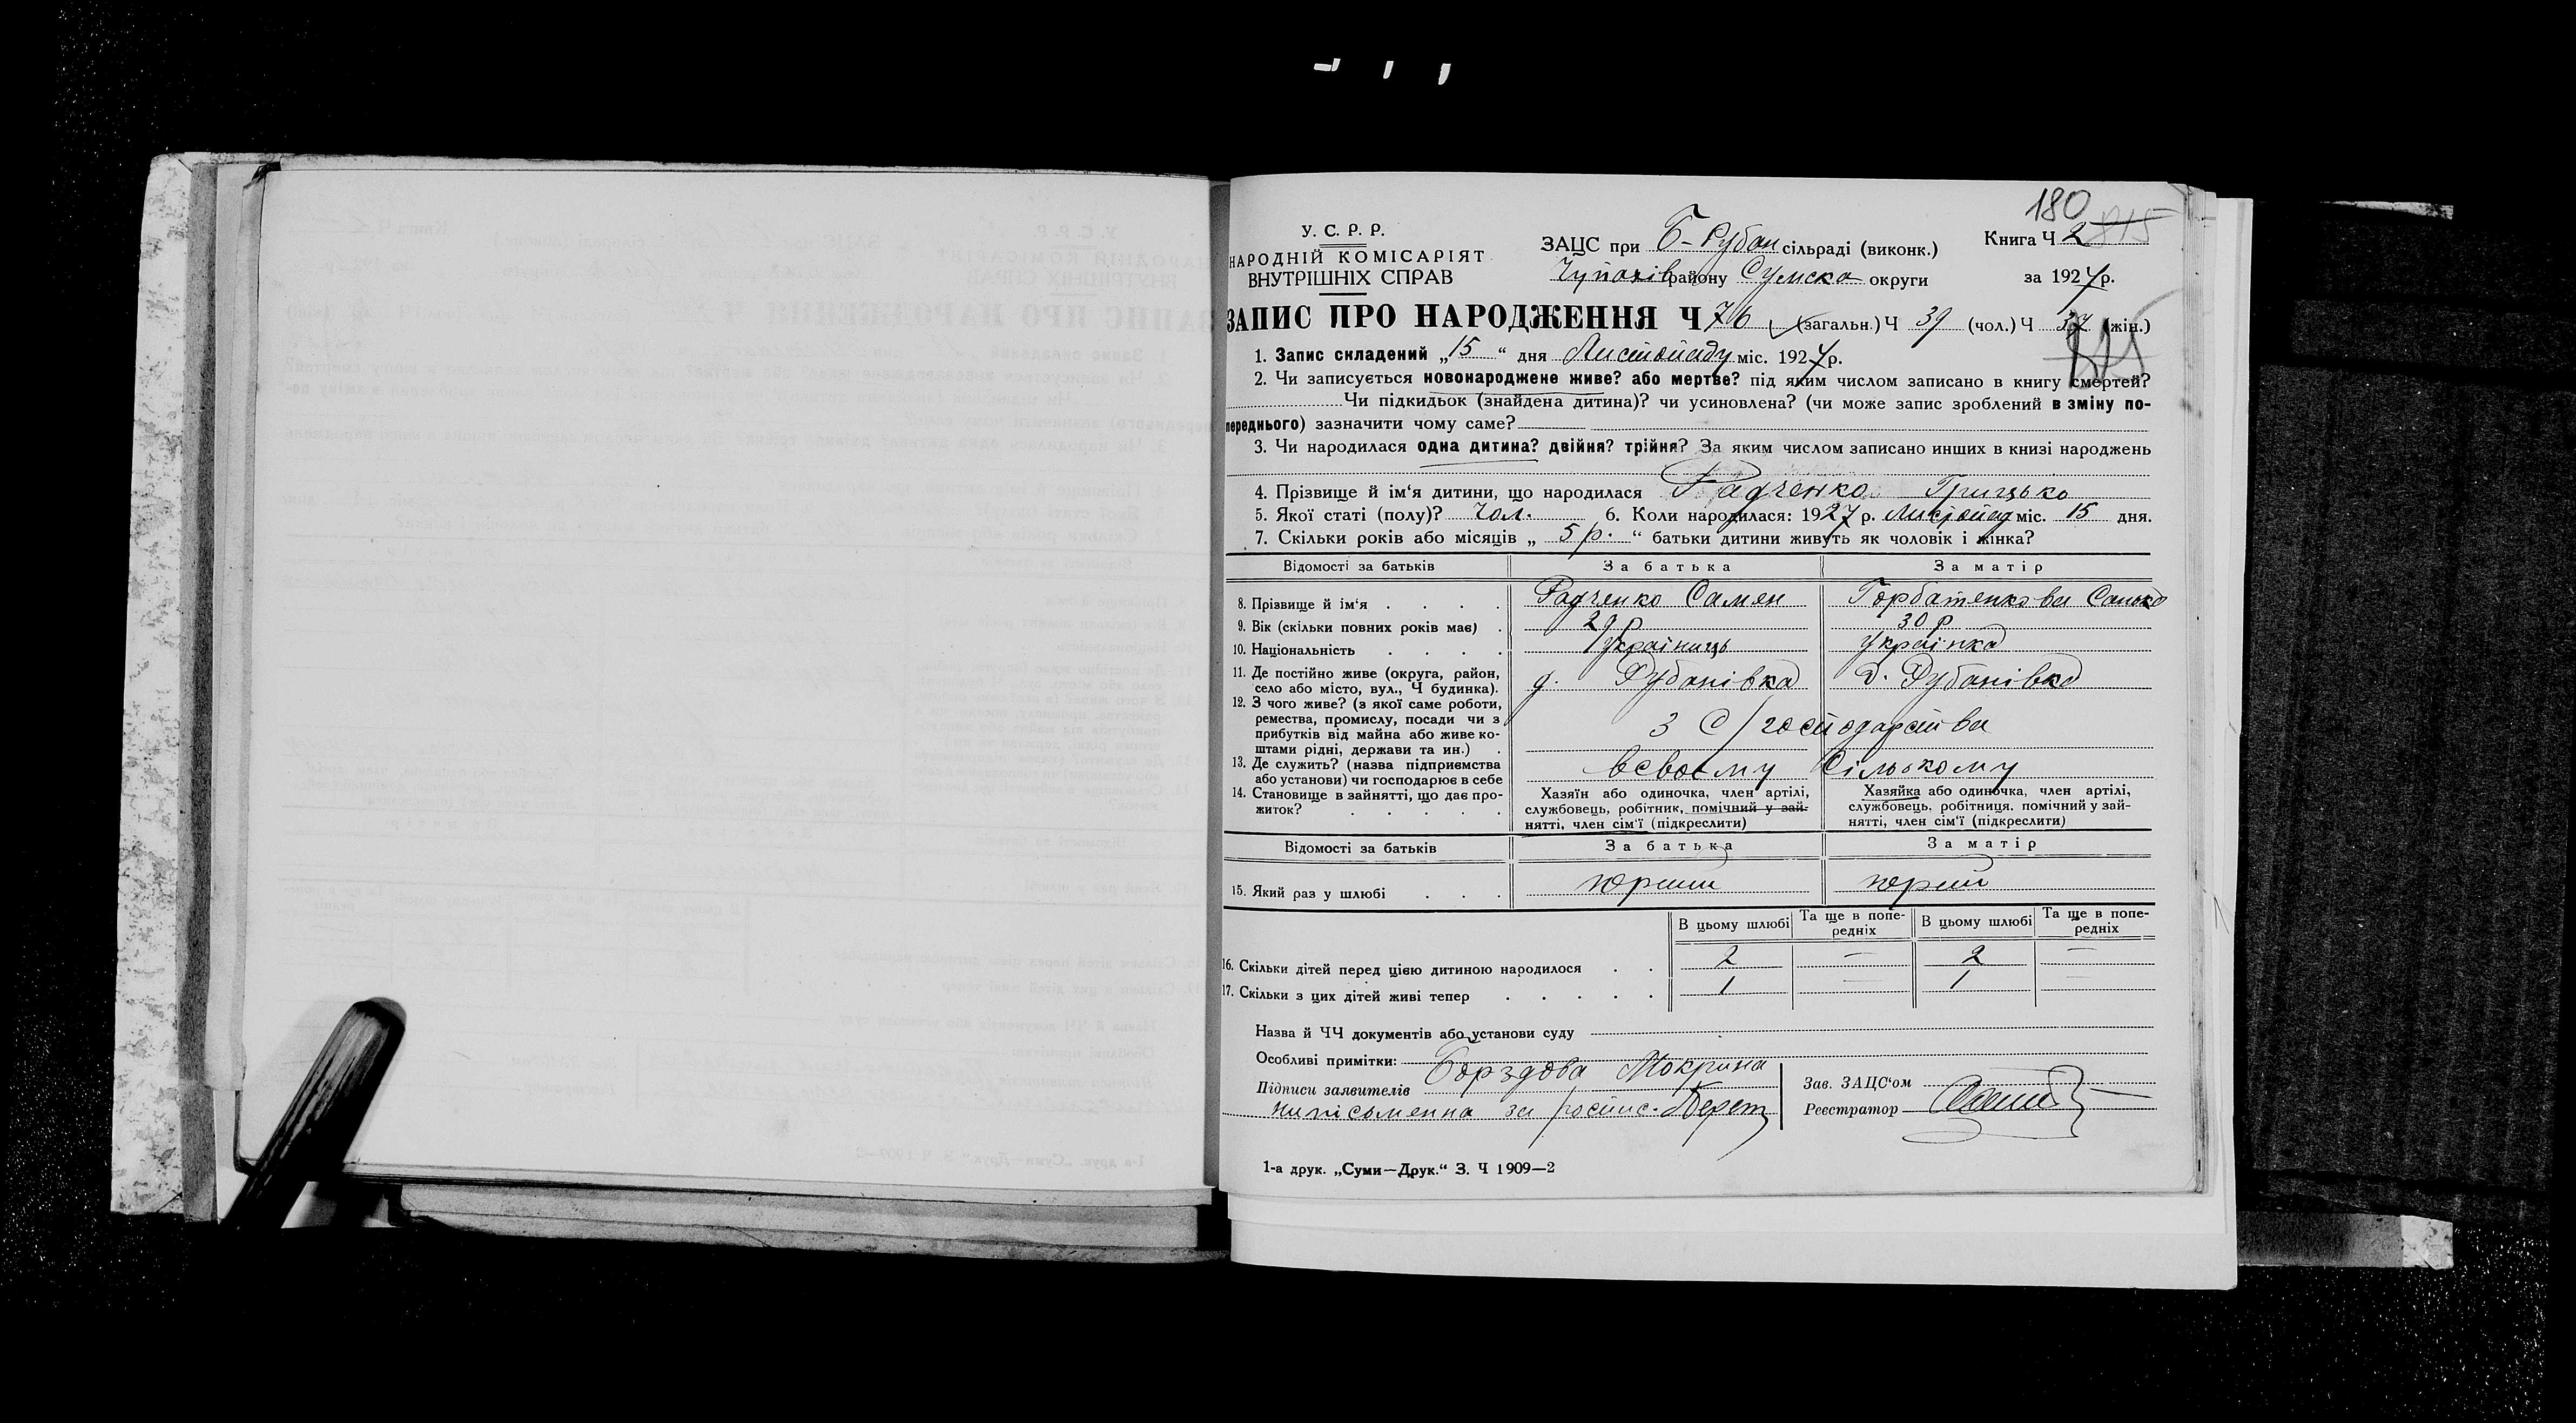 180
У. С. Р. Р.
НАРОДНІЙ КОМІСАРІЯТ
ВНУТРІШНІХ СПРАВ
ЗАЦС при Б-Рубан сільраді (виконк.)
Книга Ч 2
району Сумско округи
за 1927 р.
ЗАПИС ПРО НАРОДЖЕННЯ Ч 76 (загальн.) Ч 39 (чол.) Ч 37 (жін.)
1. Запис складений „15“ дня Листопаду міс. 1927 р.
2. Чи записується новонароджене живе? або мертве? під яким числом записано в книгу смертей?
Чи підкидьок (знайдена дитина)? чи усиновлена? (чи може запис зроблений в зміну по-
переднього) зазначити чому саме?
3. Чи народилася одна дитина? двійня? трійня? За яким числом записано инших в книзі народжень
4. Прізвище й ім‘я дитини, що народилася Радченко Грицько
5. Якої статі (полу)? чол. 6. Коли народилася: 1927 р. Листопад міс. 15 дня.
7. Скільки років або місяців „ 5 р. “ батьки дитини живуть як чоловік і жінка?
Відомості за батьків За батька За матір
8. Прізвище й ім‘я Радченко Самен Горбатенкова Санько
9. Вік (скільки повних років має) 29 р 30 р
10. Національність Українць Українка
11. Де постійно живе (округа, район,
село або місто, вул., Ч будинка). д. Рубанівка д. Рубанівка
12. З чого живе? (з якої саме роботи,
ремества, промислу, посади чи з
прибутків від майна або живе ко-
штами рідні, держави та ин.) з С/господарства
13. Де служить? (назва підприємства
або установи) чи господарює в себе всвоєму сількому
14. Становище в зайнятті, що дає про-
житок?
Хазяїн або одиночка, член артілі,
службовець, робітник, помічний у зай-
нятті, член сім‘ї (підкреслити)
Хазяйка або одиночка, член артілі,
службовець, робітниця, помічний у зай-
нятті, член сім‘ї (підкреслити)
Відомості за батьків За батька За матір
15. Який раз у шлюбі
В цьому шлюбі Та ще в попе-
редніх В цьому шлюбі Та ще в попе-
редніх
16. Скільки дітей перед цією дитиною народилося 2 — 2 —
17. Скільки з цих дітей живі тепер 1 — 1 —
Назва й ЧЧ документів або установи суду
Особливі примітки:
Підписи заявителів Борздова Мокрина
за
Зав. ЗАЦС‘ом
Реєстратор
1-а друк. „Суми—Друк.“ З. Ч 1909—2